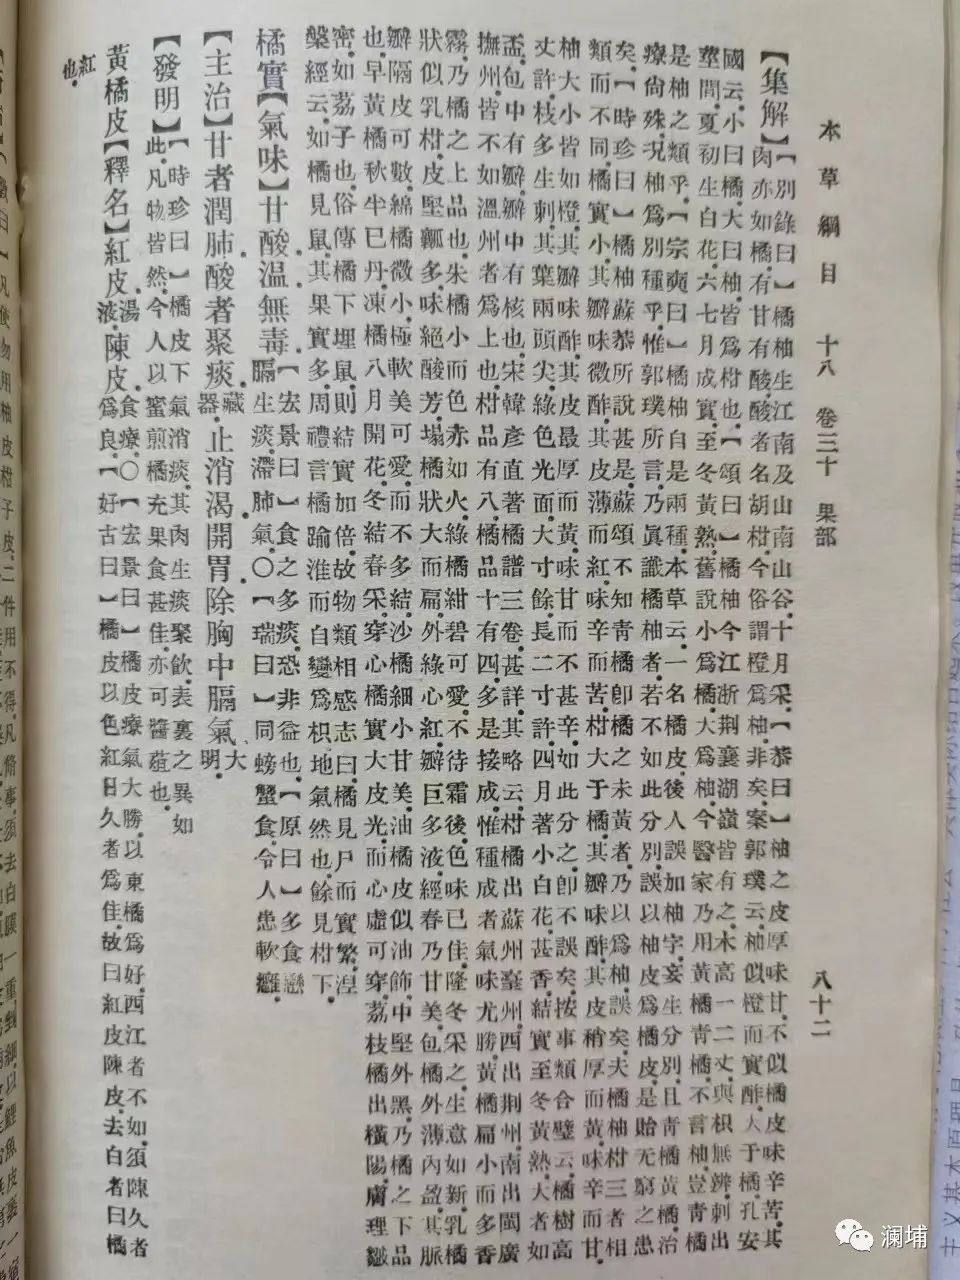 本草綱目 十八 卷三十 果部 八十二
【集解】【別錄曰】橘柚生江南及山南山谷.十月采.【恭曰】柚之皮厚味甘.不似橘皮味辛苦.其
肉亦如橘.有甘有酸.酸者名胡柑.今俗謂橙爲柚.非矣.案郭璞云.柚似橙而實酢.大于橘.孔安
國云.小曰橘.大曰柚.皆爲柑也.【頌曰】橘柚今江浙荆襄湖嶺皆有之.木高一二丈.與枳無辨.刺出
莖間.夏初生白花.六七月成實.至冬黃熟.舊說小爲橘.大爲柚.今醫家乃用黃橘青橘.不言柚.豈青橘
是柚之類乎.【宗奭曰】橘柚自是兩種.本草云.一名橘皮.後人誤加柚字.妄生分別.且青橘黃橘治
療尚殊.况柚爲別種乎.惟郭璞所言.乃眞識橘柚者.若不如此分別.誤以柚皮爲橘皮.是貽无窮之患
矣.【時珍曰】橘柚蘇恭所說甚是.蘇頌不知青橘卽橘之未黃者.乃以爲柚.誤矣.夫橘柚柑三者相
類而不同.橘實小.其瓣味微酢.其皮薄而紅.味辛而苦.柑大于橘.其瓣味酢.其皮稍厚而黃.味辛而甘.
柚大小皆如橙.其瓣味酢.其皮最厚而黃.味甘而不甚辛.如此分之.卽不誤矣.按事類合璧云.橘樹高
丈許.枝多生刺.其葉兩頭尖.綠色光面.大寸餘.長二寸許.四月著小白花.甚香.結實至冬黃熟.大者如
盃.包中有瓣.瓣中有核也.宋韓彥直著橘譜三卷甚詳.其略云.柑橘出蘇州臺州.西出荆州.南出閩廣
撫州.皆不如溫州者爲上也.柑品有八.橘品十有四.多是接成.惟種成者.氣味尤勝.黃橘扁小而多香
霧.乃橘之上品也.朱橘小而色赤如火.綠橘紺碧可愛.不待霜後.色味已佳.隆冬采之.生意如新.乳橘
狀似乳柑.皮堅瓤多.味絕酸芳.塌橘狀大而扁.外綠心紅.瓣巨多液.經春乃甘美.包橘外薄內盈.其脈
瓣隔皮可數.綿橘微小.極軟美可愛.而不多結.沙橘細小甘美.油橘皮似油飾.中堅外黑.乃橘之下品
也.早黃橘秋半已丹.凍橘八月開花.冬結春采.穿心橘實大皮光.而心虛可穿.荔枝橘出橫陽.膚理皺
密如荔子也.俗傳橘下埋鼠.則結實加倍.故物類相感志曰.橘見尸而實繁.涅
槃經云.如橘見鼠.其果實多.周禮言橘踰淮而自變爲枳.地氣然也.餘見柑下.
橘實【氣味】甘酸.溫.無毒.【宏景曰】食之多痰.恐非益也.【原曰】多食戀
膈生痰.滯肺氣.〇【瑞曰】同螃蟹食.令人患軟癰.
【主治】甘者潤肺.酸者聚痰.藏器.止消渴.開胃.除胸中膈氣.大明.
【發明】【時珍曰】橘皮下氣消痰.其肉生痰聚飲.表裏之異如
此.凡物皆然.今人以蜜煎橘充果食甚佳.亦可醬菹也.
黃橘皮【釋名】紅皮.湯液.陳皮.食療.〇【宏景曰】橘皮療氣大勝.以東橘爲好.西江者不如.須陳久者
爲良.【好古曰】橘皮以色紅日久者爲佳.故曰紅皮陳皮.去白者曰橘
紅也.
澜埔